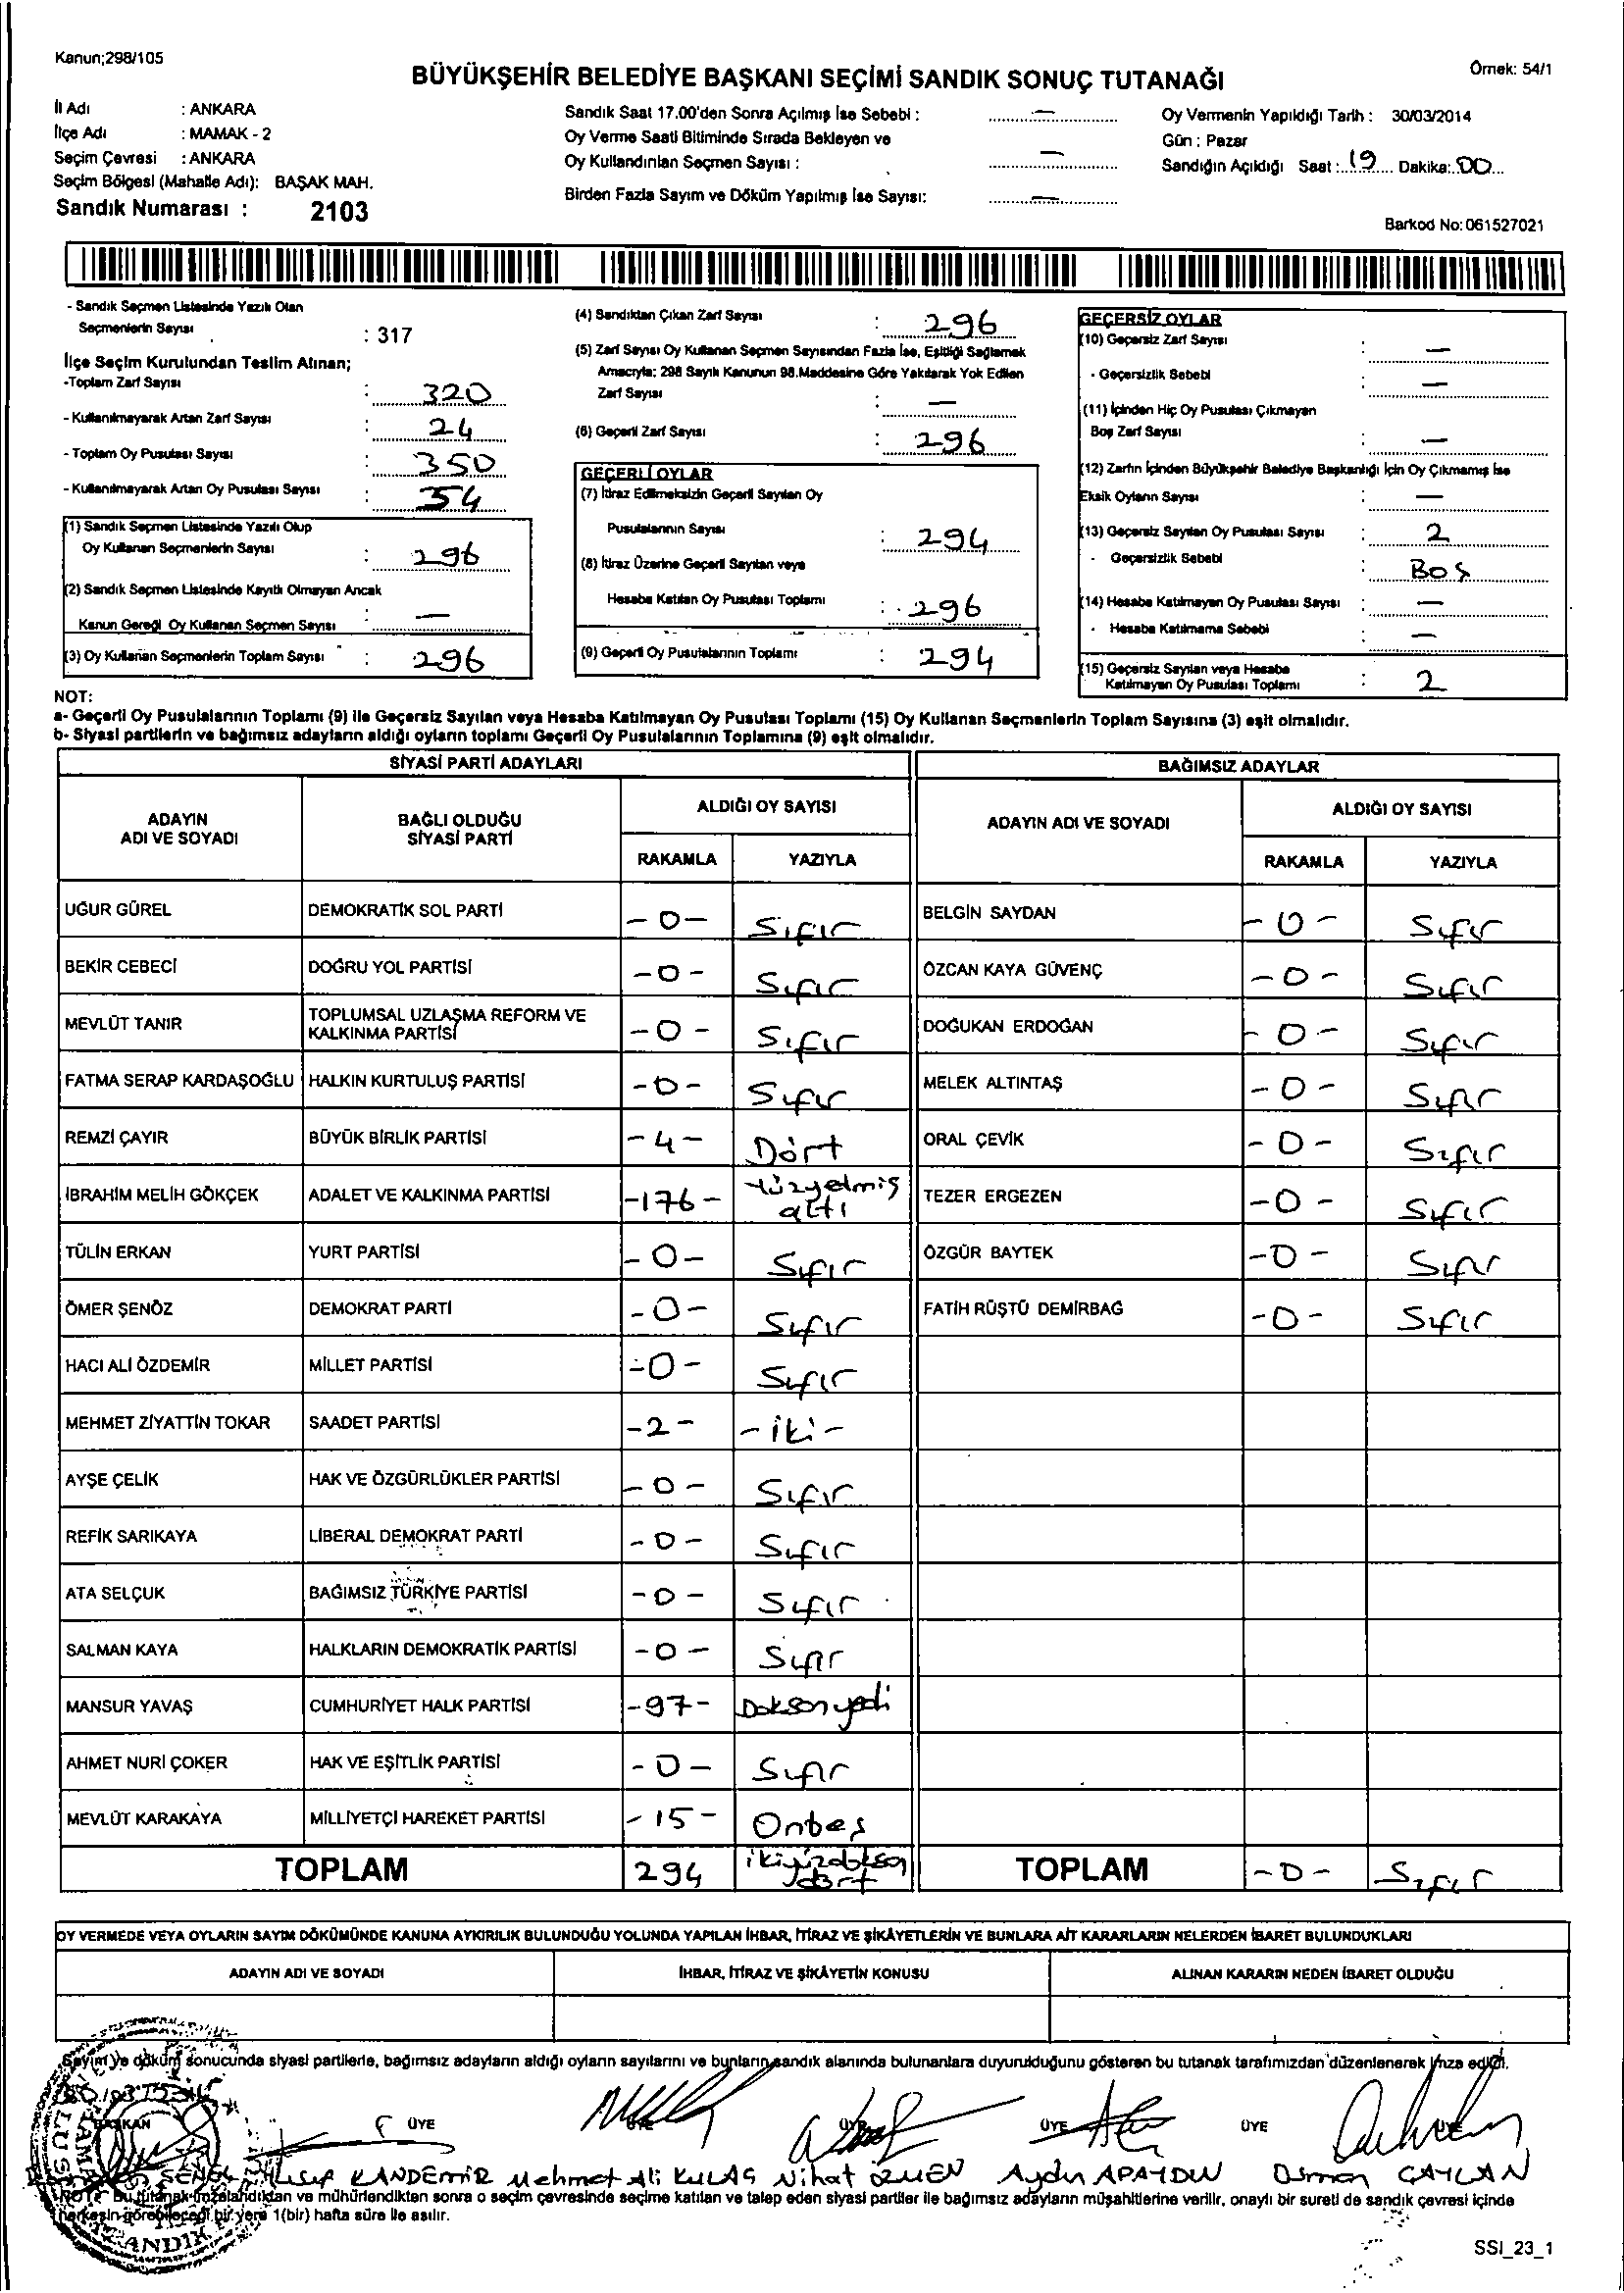 Kanun;298/105
Örnek: 54/1
BÜYÜKŞEHİR BELEDİYE BAŞKANI SEÇİMİ SANDIK SONUÇ TUTANAĞI
İl Adı : ANKARA
İlçe Adı : MAMAK - 2
Seçim Çevresi : ANKARA
Seçim Bölgesi (Mahalle Adı): BAŞAK MAH.
Sandık Numarası : 2103
Sandık Saat 17.00'den Sonra Açılmış İse Sebebi : —
Oy Verme Saati Bitiminde Sırada Bekleyen ve
Oy Kullandırılan Seçmen Sayısı : —
Birden Fazla Sayım ve Döküm Yapılmış İse Sayısı: —
Oy Vermenin Yapıldığı Tarih : 30/03/2014
Gün : Pazar
Sandığın Açıldığı Saat : 19 Dakika: 00
Barkod No: 061527021
- Sandık Seçmen Listesinde Yazılı Olan
Seçmenlerin Sayısı : 317
İlçe Seçim Kurulundan Teslim Alınan;
-Toplam Zarf Sayısı : 320
- Kullanılmayarak Artan Zarf Sayısı : 24
- Toplam Oy Pusulası Sayısı : 350
- Kullanılmayarak Artan Oy Pusulası Sayısı : 54
(1) Sandık Seçmen Listesinde Yazılı Olup
Oy Kullanan Seçmenlerin Sayısı : 296
(2) Sandık Seçmen Listesinde Kayıtlı Olmayan Ancak
Kanun Gereği Oy Kullanan Seçmen Sayısı : —
(3) Oy Kullanan Seçmenlerin Toplam Sayısı : 296
(4) Sandıktan Çıkan Zarf Sayısı : 296
(5) Zarf Sayısı Oy Kullanan Seçmen Sayısından Fazla İse, Eşitliği Sağlamak
Amacıyla; 298 Sayılı Kanunun 98.Maddesine Göre Yakılarak Yok Edilen
Zarf Sayısı : —
(6) Geçerli Zarf Sayısı : 296
GEÇERLİ OYLAR
(7) İtiraz Edilmeksizin Geçerli Sayılan Oy
Pusulalarının Sayısı : 294
(8) İtiraz Üzerine Geçerli Sayılan veya
Hesaba Katılan Oy Pusulası Toplamı : 296
(9) Geçerli Oy Pusulalarının Toplamı : 294
GEÇERSİZ OYLAR
(10) Geçersiz Zarf Sayısı : —
- Geçersizlik Sebebi : —
(11) İçinden Hiç Oy Pusulası Çıkmayan
Boş Zarf Sayısı : —
(12) Zarfın İçinden Büyükşehir Belediye Başkanlığı İçin Oy Çıkmamış İse
Eksik Oyların Sayısı : —
(13) Geçersiz Sayılan Oy Pusulası Sayısı : 2
- Geçersizlik Sebebi : BOŞ
(14) Hesaba Katılmayan Oy Pusulası Sayısı : —
- Hesaba Katılmama Sebebi : —
(15) Geçersiz Sayılan veya Hesaba
Katılmayan Oy Pusulası Toplamı : 2
NOT:
a- Geçerli Oy Pusulalarının Toplamı (9) ile Geçersiz Sayılan veya Hesaba Katılmayan Oy Pusulası Toplamı (15) Oy Kullanan Seçmenlerin Toplam Sayısına (3) eşit olmalıdır.
b- Siyasi partilerin ve bağımsız adayların aldığı oyların toplamı Geçerli Oy Pusulalarının Toplamına (9) eşit olmalıdır.
SİYASİ PARTİ ADAYLARI
ADAYIN ADI VE SOYADI
BAĞLI OLDUĞU SİYASİ PARTİ
ALDIĞI OY SAYISI
RAKAMLA YAZIYLA
UĞUR GÜREL DEMOKRATİK SOL PARTİ -0- Sıfır
BEKİR CEBECİ DOĞRU YOL PARTİSİ -0- Sıfır
MEVLÜT TANIR TOPLUMSAL UZLAŞMA REFORM VE KALKINMA PARTİSİ -0- Sıfır
FATMA SERAP KARDAŞOĞLU HALKIN KURTULUŞ PARTİSİ -0- Sıfır
REMZİ ÇAYIR BÜYÜK BİRLİK PARTİSİ -4- Dört
İBRAHİM MELİH GÖKÇEK ADALET VE KALKINMA PARTİSİ -176- Yüzyetmiş altı
TÜLİN ERKAN YURT PARTİSİ -0- Sıfır
ÖMER ŞENÖZ DEMOKRAT PARTİ -0- Sıfır
HACI ALİ ÖZDEMİR MİLLET PARTİSİ -0- Sıfır
MEHMET ZİYATTİN TOKAR SAADET PARTİSİ -2- -iki-
AYŞE ÇELİK HAK VE ÖZGÜRLÜKLER PARTİSİ -0- Sıfır
REFİK SARIKAYA LİBERAL DEMOKRAT PARTİ -0- Sıfır
ATA SELÇUK BAĞIMSIZ TÜRKİYE PARTİSİ -0- Sıfır
SALMAN KAYA HALKLARIN DEMOKRATİK PARTİSİ -0- Sıfır
MANSUR YAVAŞ CUMHURİYET HALK PARTİSİ -97- Doksanyedi
AHMET NURİ ÇOKER HAK VE EŞİTLİK PARTİSİ -0- Sıfır
MEVLÜT KARAKAYA MİLLİYETÇİ HAREKET PARTİSİ -15- Onbeş
TOPLAM 294 ikiyüzdoksan dört
BAĞIMSIZ ADAYLAR
ADAYIN ADI VE SOYADI
ALDIĞI OY SAYISI
RAKAMLA YAZIYLA
BELGİN SAYDAN -0- Sıfır
ÖZCAN KAYA GÜVENÇ -0- Sıfır
DOĞUKAN ERDOĞAN -0- Sıfır
MELEK ALTINTAŞ -0- Sıfır
ORAL ÇEVİK -0- Sıfır
TEZER ERGEZEN -0- Sıfır
ÖZGÜR BAYTEK -0- Sıfır
FATİH RÜŞTÜ DEMİRBAĞ -0- Sıfır
TOPLAM -0- Sıfır
OY VERMEDE VEYA OYLARIN SAYIM DÖKÜMÜNDE KANUNA AYKIRILIK BULUNDUĞU YOLUNDA YAPILAN İHBAR, İTİRAZ VE ŞİKÂYETLERİN VE BUNLARA AİT KARARLARIN NELERDEN İBARET BULUNDUKLARI
ADAYIN ADI VE SOYADI
İHBAR, İTİRAZ VE ŞİKÂYETİN KONUSU
ALINAN KARARIN NEDEN İBARET OLDUĞU
Sayım ve döküm sonucunda siyasi partilerle, bağımsız adayların aldığı oyların sayılarını ve bunların sandık alanında bulunanlara duyurulduğunu gösteren bu tutanak tarafımızdan düzenlenerek imza edildi.
BAŞKAN ÜYE ÜYE ÜYE ÜYE ÜYE ÜYE
KANDEMİR Mehmet Ali KULAS Nihat ÖZMEN Aydın APAYDIN Osman CAYLAN
NOT: Bu tutanak imzalandıktan ve mühürlendikten sonra o seçim çevresinde seçime katılan ve talep eden siyasi partiler ile bağımsız adayların müşahitlerine verilir, onaylı bir sureti de sandık çevresi içinde
herkesin görebileceği bir yere 1(bir) hafta süre ile asılır.
SSI_23_1